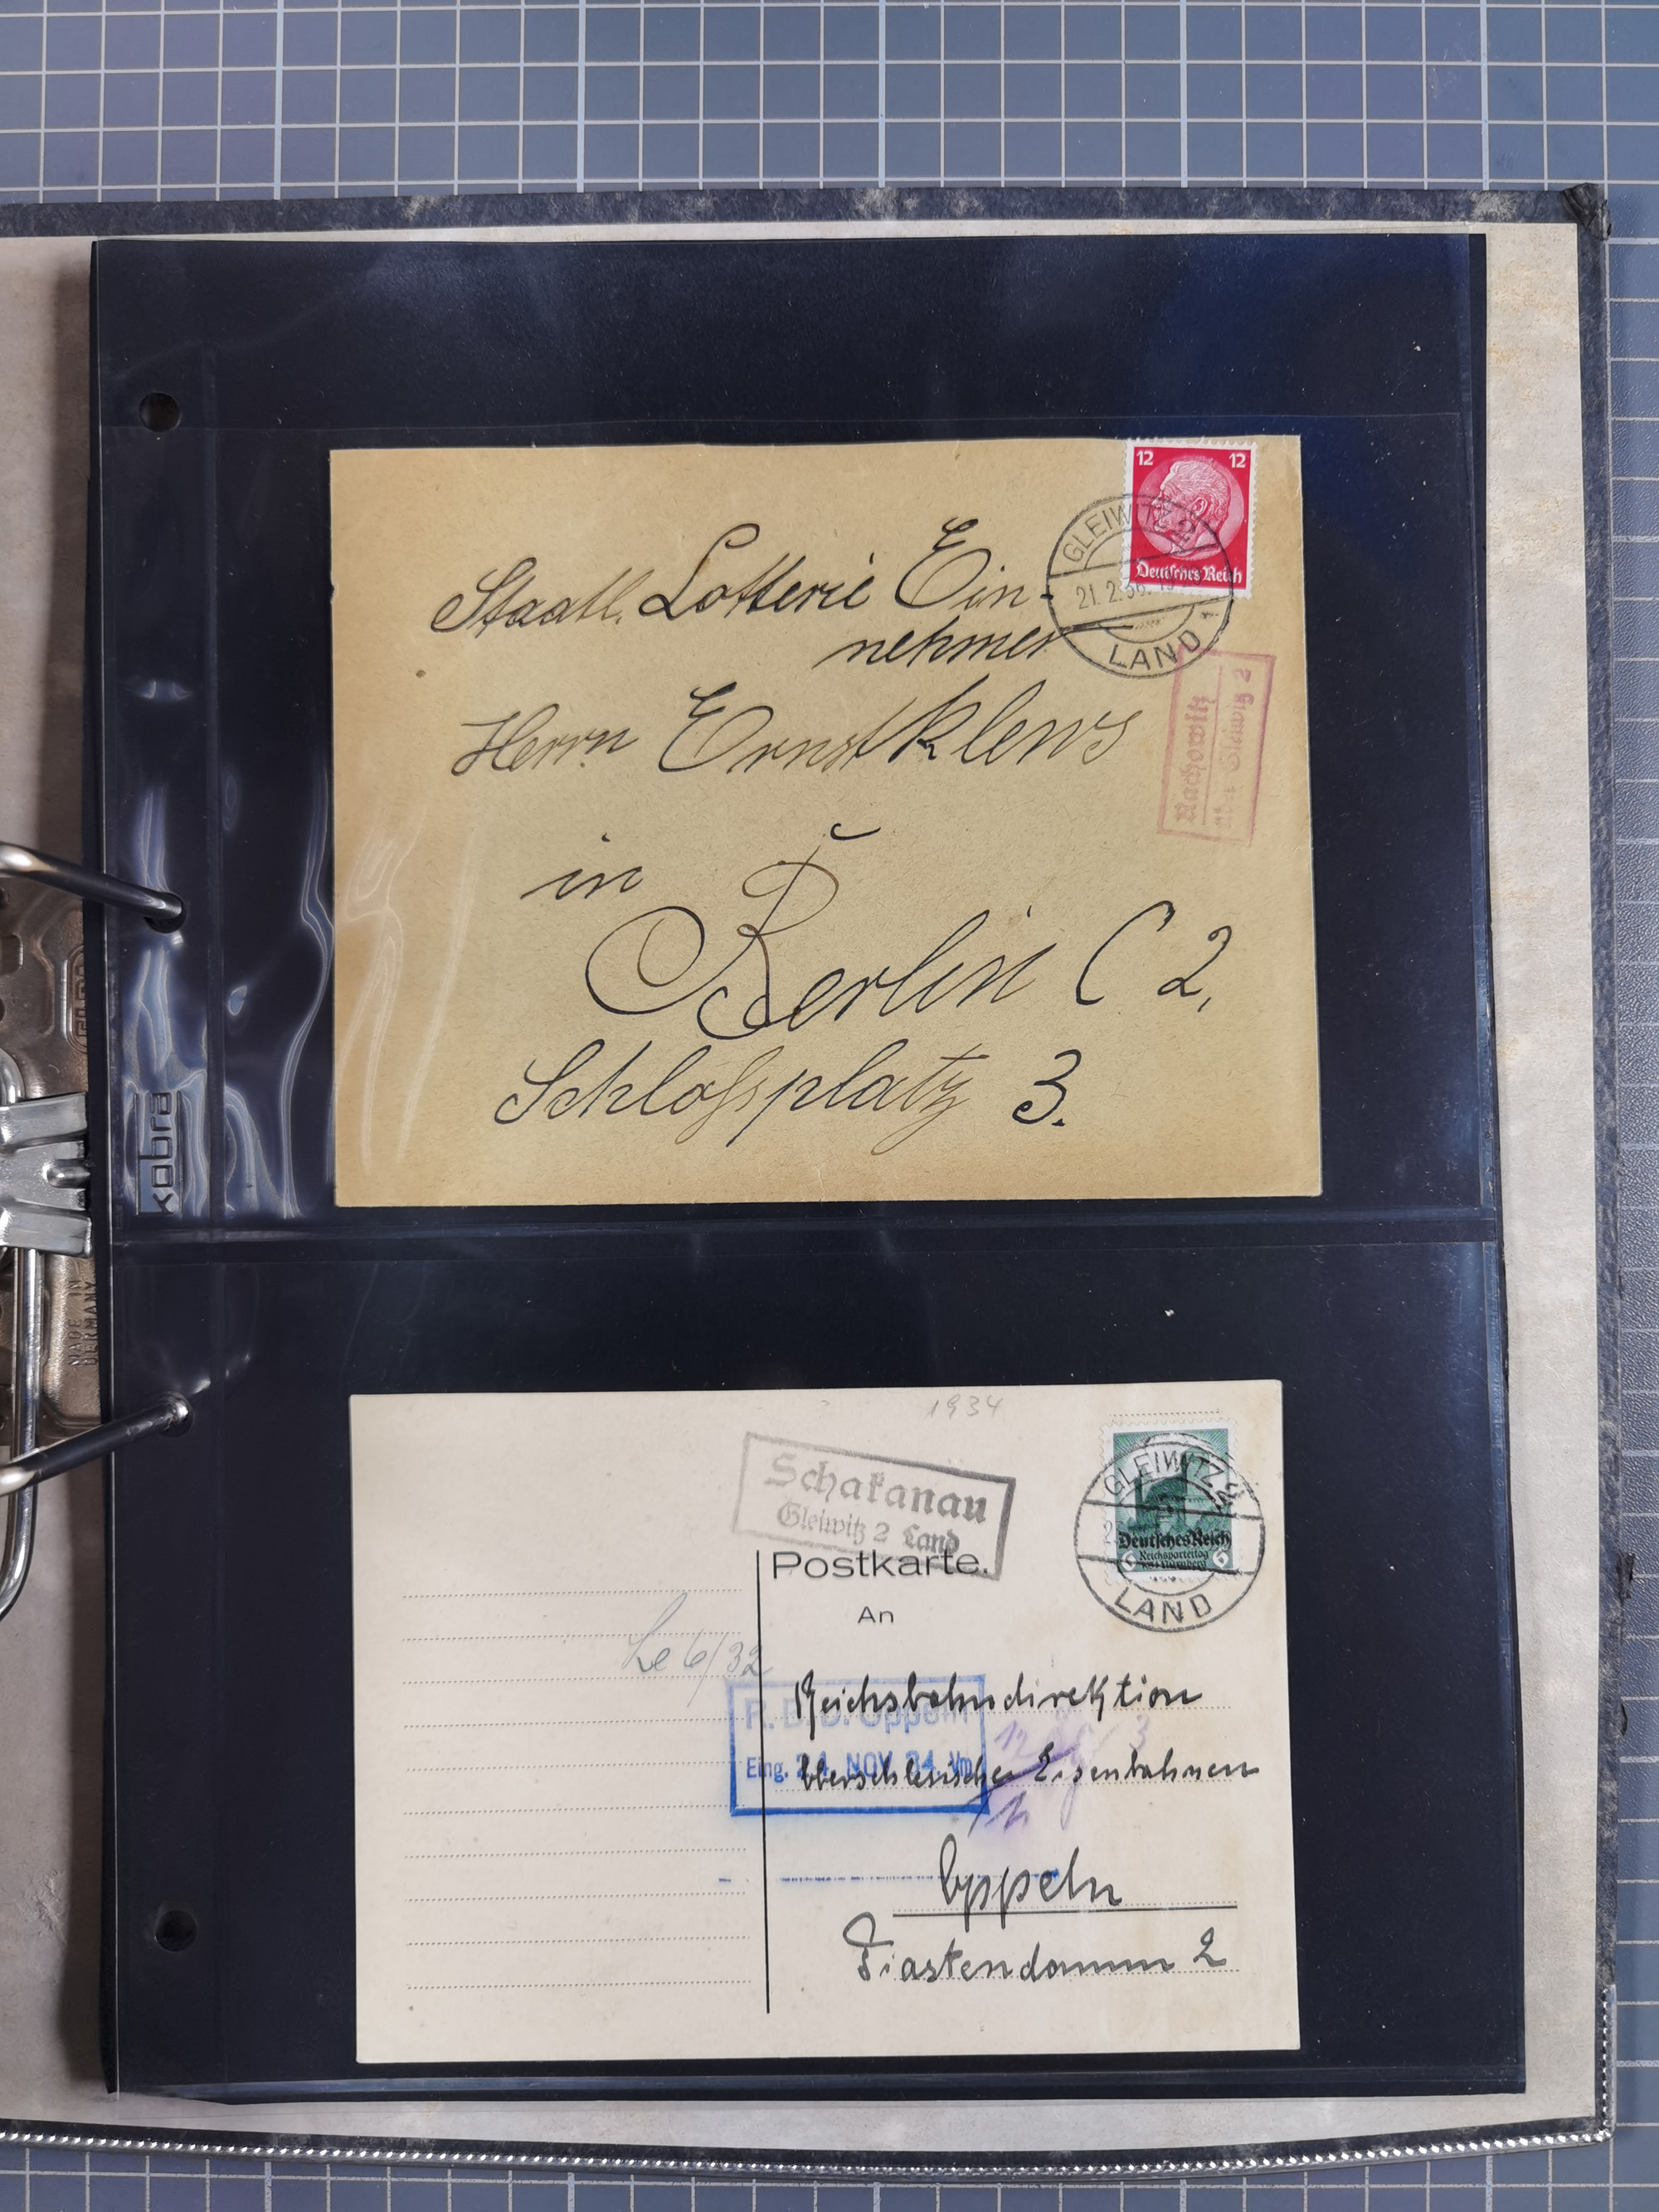 12 12
Deutsches Reich
GLEIWITZ 2
21. 2. 36.
LAND
Staatl. Lotterie Ein-
nehmer
Herrn Ernst Klews
Rachowitz
über Gleiwitz 2
in
Berlin C 2,
Schloßplatz 3.
kobra
MADE IN
GERMANY
1934
Schakanau
Gleiwitz 2 Land
GLEIWITZ 2
Deutsches Reich
Reichsparteitag
Nürnberg
6 6
LAND
Postkarte.
An
6/32
Reichsbahndirektion
R. B. D. Oppeln
Eing. 24. NOV. 34. Vm
Oberschlesischer Eisenbahnen
Oppeln
Piastendamm 2